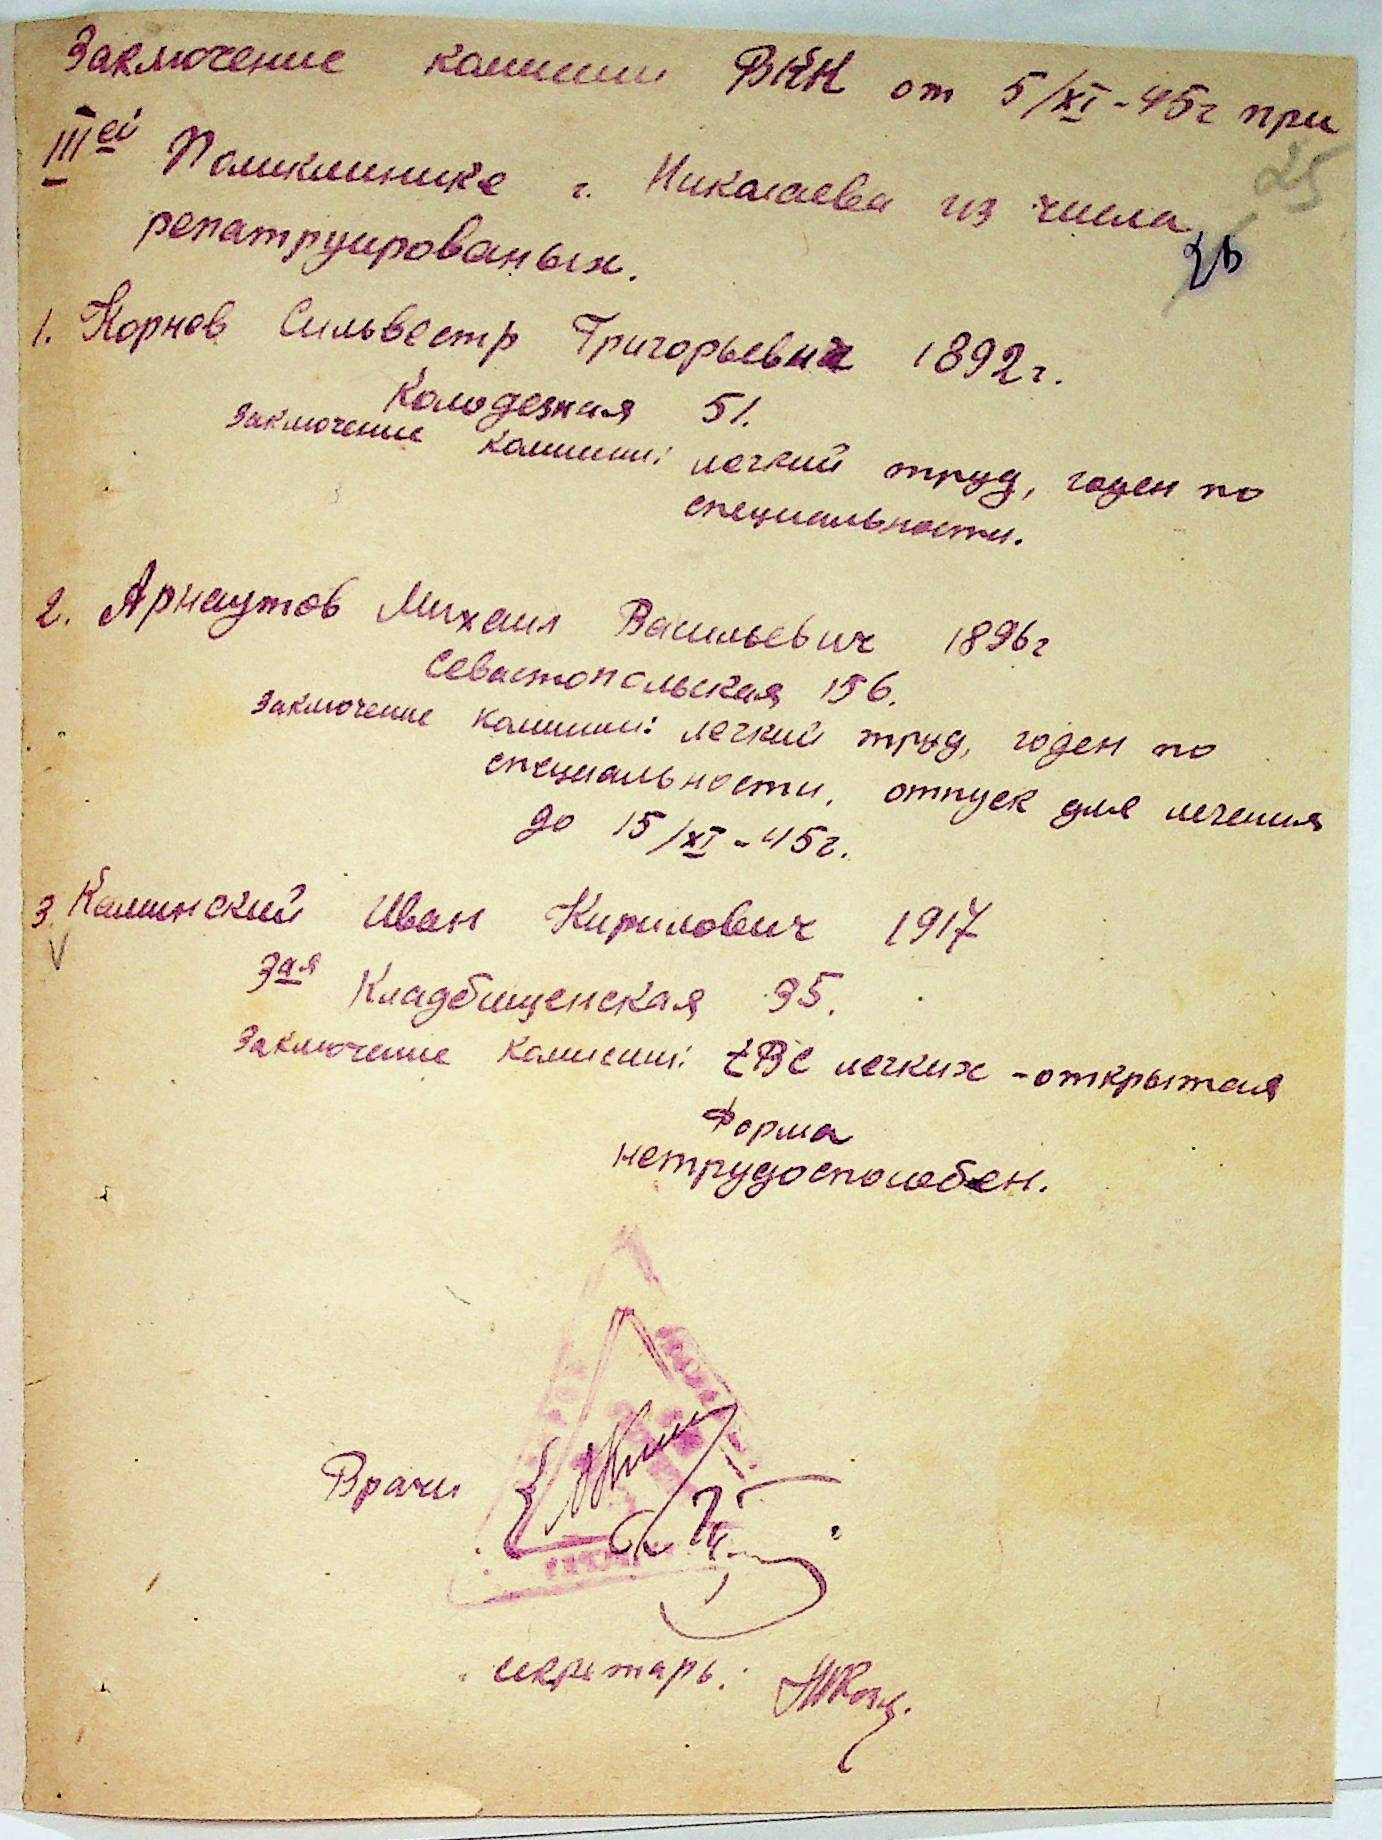 Заключение комисии ВКК от 5/XI-45г при
25
IIIей Поликлинике г. Николаева из числа
26
репатруированых.
1. Корнев Сильвестр Григорьевич 1892г.
Колодезная 51.
Заключение комисии: легкий труд, годен по
специальности.
2. Арнаутов Михаил Васильевич 1896г
Севастопольская 156.
Заключение комисии: легкий труд, годен по
специальности, отпуск для лечения
до 15/XI-45г.
3. Каминский Иван Кирилович 1917
3ая Кладбищенская 35.
Заключение комисии: tBC легких - открытая
форма
нетрудоспособен.
Врачи
секретарь: